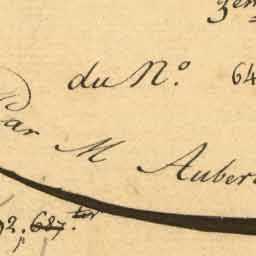 3em
du N.o 64
Par M Auber
2. 627. ter
p